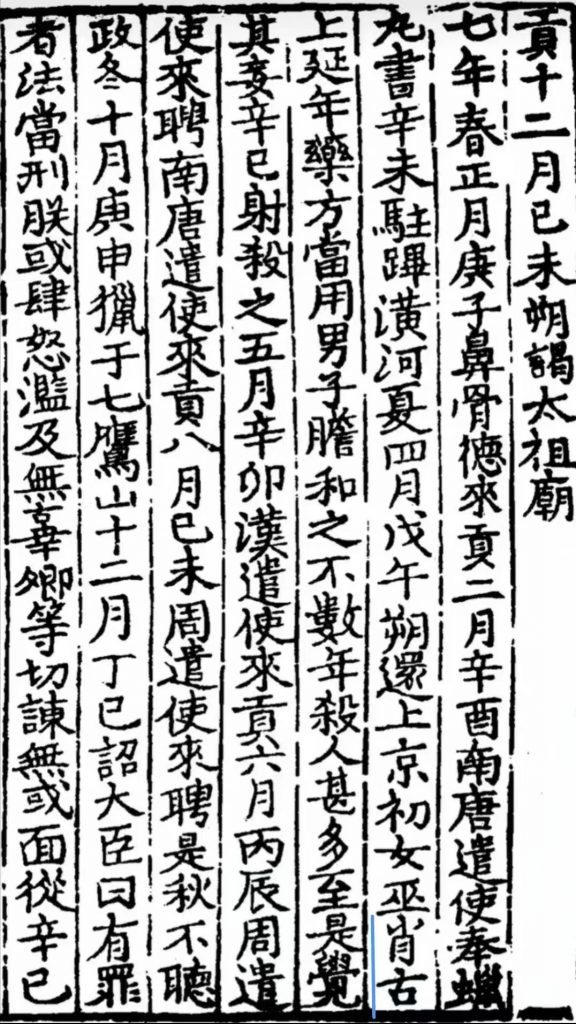 貢十二月已未朔謁太祖廟
七年春正月庚子鼻骨德來貢二月辛酉南唐遣使奉蠟
丸書辛未駐蹕潢河夏四月戊午朔還上京初女巫肖古
上延年藥方當用男子膽和之不數年殺人甚多至是覺
其妄辛已射殺之五月辛卯漢遣使來貢六月丙辰周遣
使來聘南唐遣使來貢八月已未周遣使來聘是秋不聽
政冬十月庚申獵于七鷹山十二月丁已詔大臣曰有罪
者法當刑朕或肆怒濫及無辜卿等切諫無或面從辛已